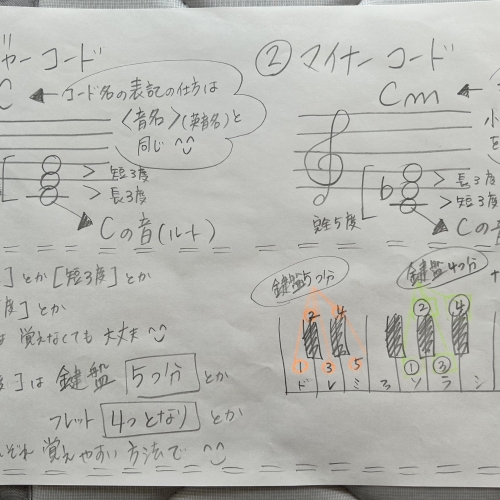 ジャーコード
② マイナーコード
C ← コード名の表記の仕方は
〈音名〉(英音名)と
同じ ^^
Cm ←
小
を
> 短3度
> 長3度
Cの音(ルート)
完全5度
♭
> 長3度
> 短3度
Cの
] とか [短3度] とか
度] とか
は 覚えなくても 大丈夫 ^^
] は 鍵盤 5つ分 とか
フレット 4つとなり とか
ぞれ 覚えやすい 方法で ^^
鍵盤5つ分
鍵盤4つ分
+
① 2 3 4 5
ド レ ミ
① ② ③ ④
ソ ラ シ